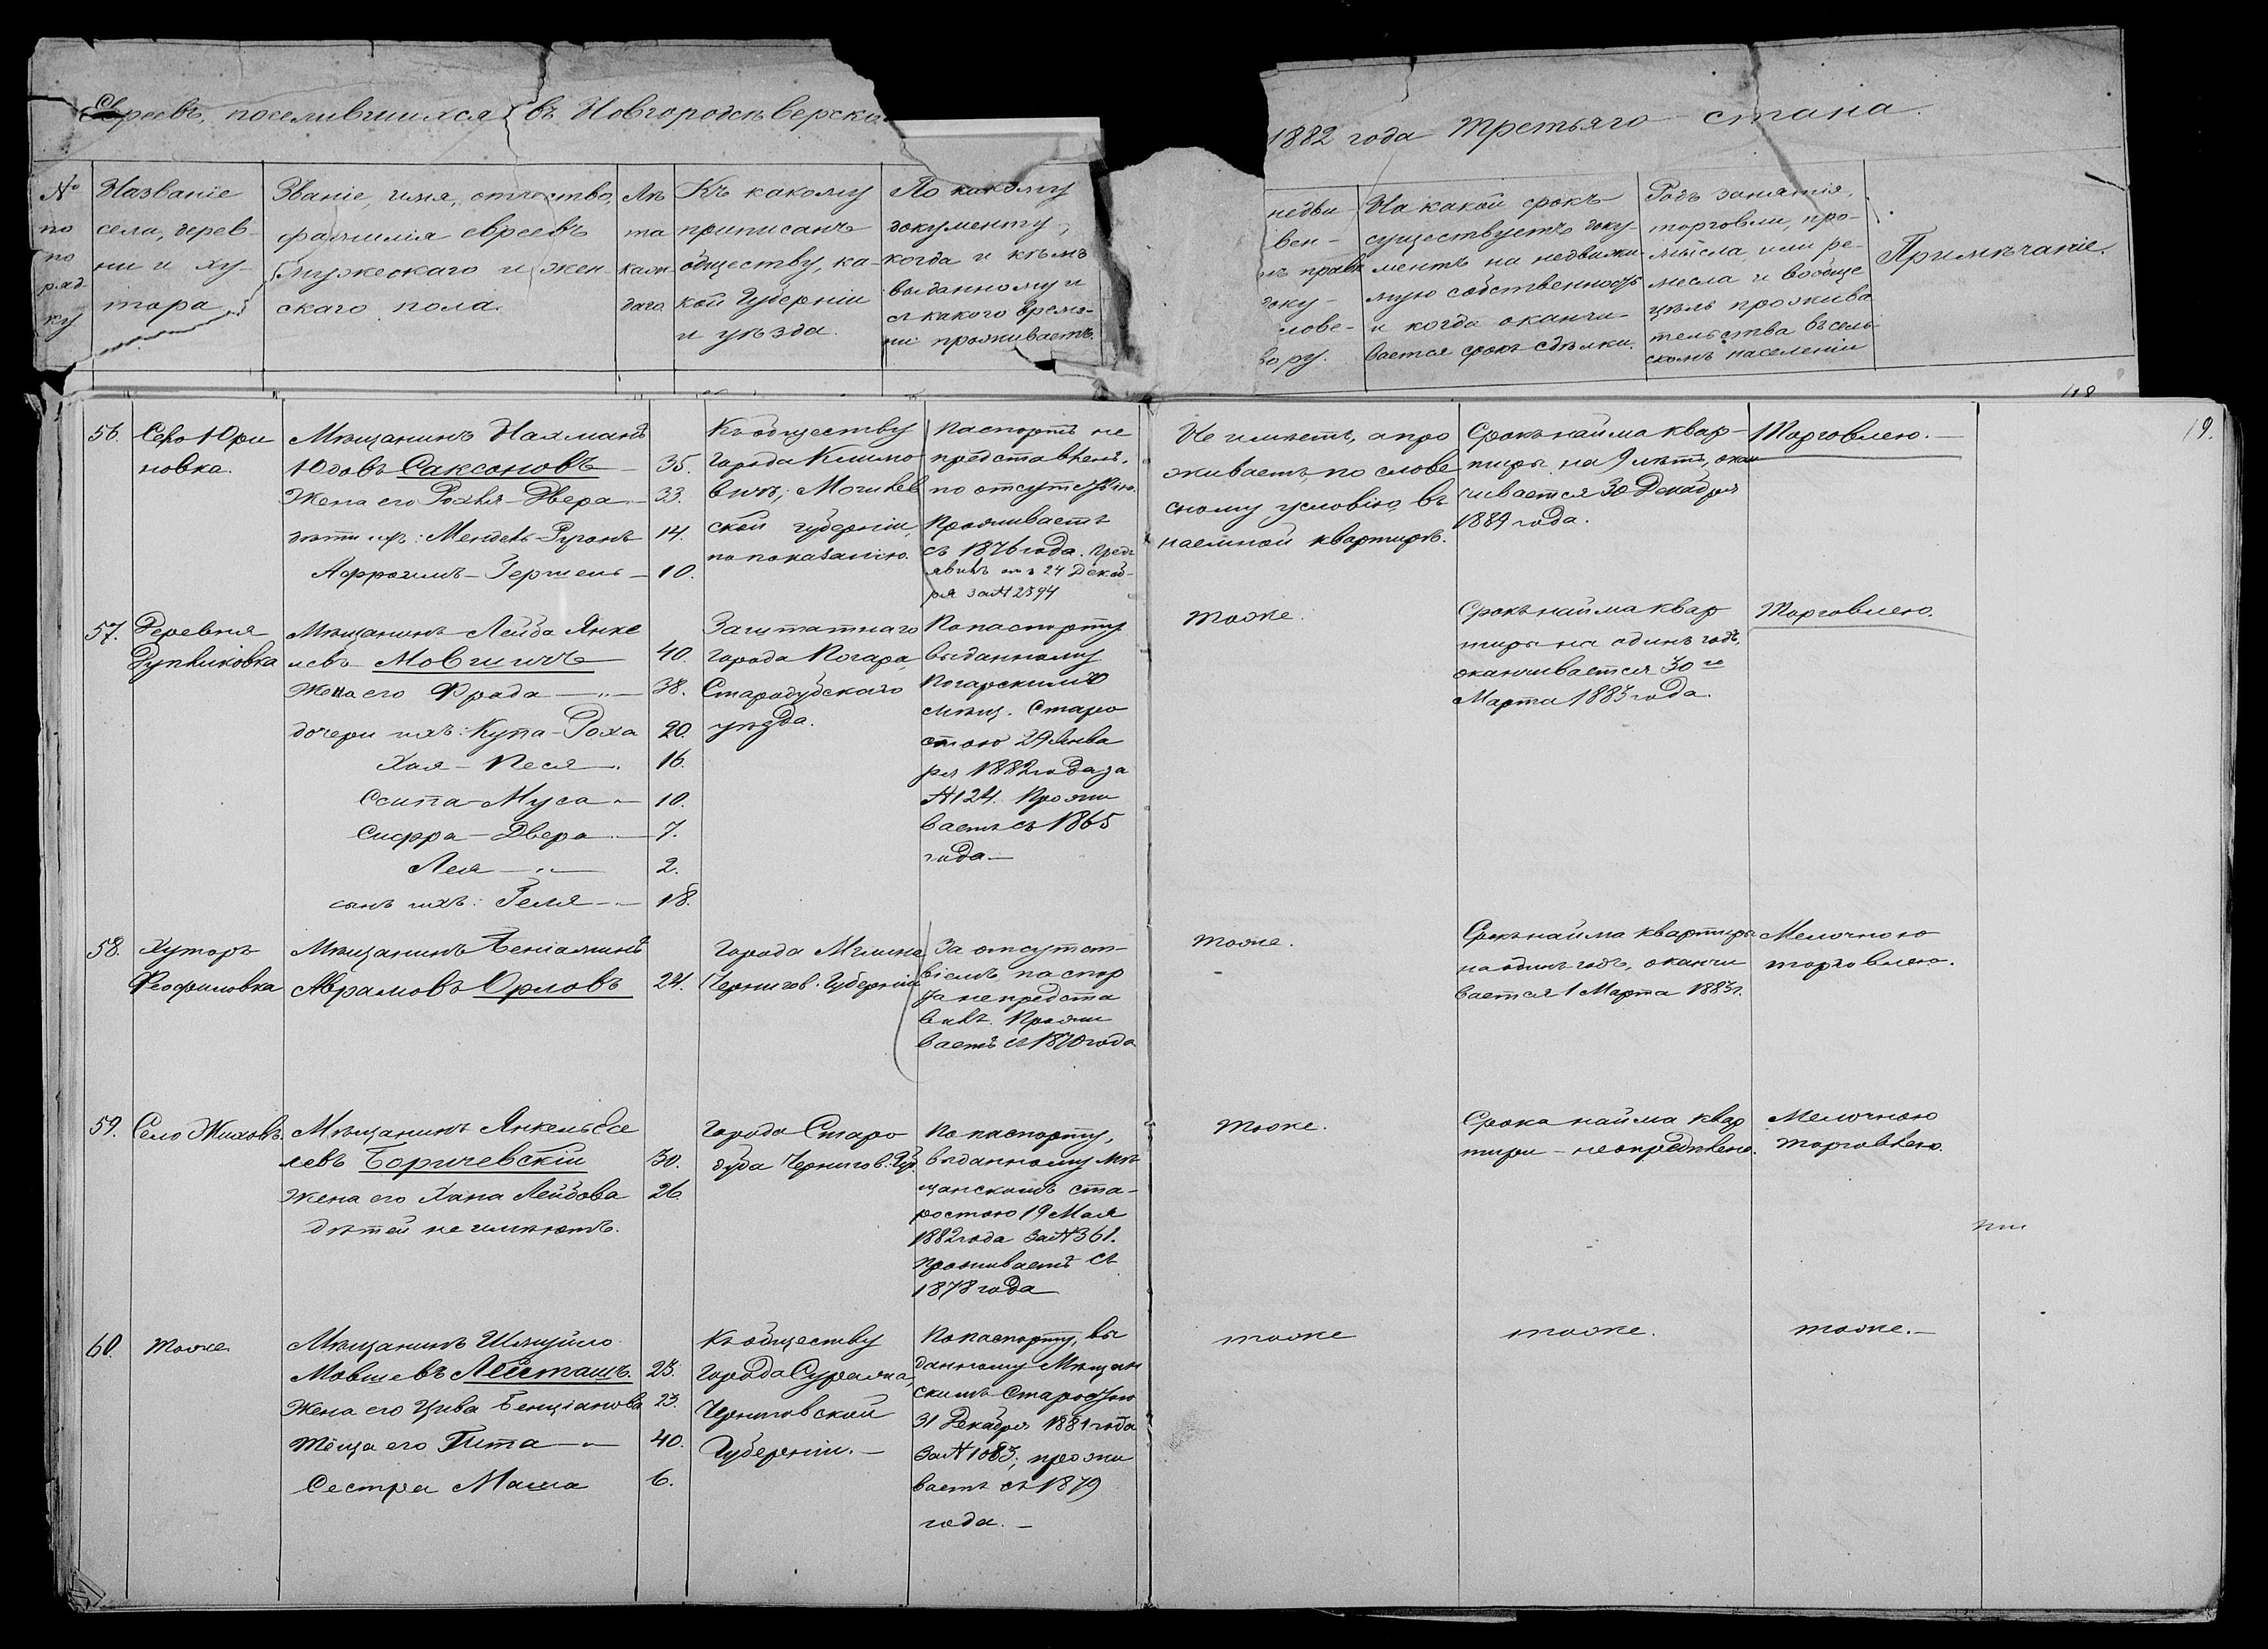 Евреевъ, поселившихся въ Новгородсѣверско
1882 года Третьяго стана.
№ по по ряд ку
Названіе села, дерев- ни и ху- тора
Званіе, имя, отчество, фамилія евреевъ мужескаго и жен- скаго пола.
Лѣ та каж даго
Къ какому приписанъ обществу, ка- кой Губерніи и уѣзда.
По какому документу, когда и кѣмъ выданному и съ какого време- ни проживаетъ.
недви
вен-
доку-
слове-
вору.
На какой срокъ существуетъ доку- ментъ на недвижи- мую собственность и когда оканчи- вается срокъ сдѣлки.
Родъ занятія, торговли, про- мысла, или ре- месла и вообще цѣль прожива тельства въ сель- скомъ населеніи
Примѣчаніе.
19.
56.
Село Юри
новка.
Мѣщанинъ Нахманъ
Юдовъ Саксоновъ — 35.
Жена его Рохля-Двера — 33.
дѣти ихъ: Мендель-Рувонъ 14.
Афроимъ-Гершель — 10.
Къ обществу
города Климо
вичъ, Могилев
ской губерніи,
по показанію.
Паспортъ не
представленъ,
по отсутствію.
Проживаетъ
съ 1876 года. Предъ
явилъ отъ 24 Декаб-
ря за № 2394
Не имѣетъ, а про
живаетъ по слове
сному условію въ
наемной квартирѣ.
Срокъ найма квар-
тиры на 9 лѣтъ, окан
чивается 30 Декабря
1889 года.
Торговлею.
57.
Деревня
Мѣщанинъ Лейба Янке
левъ Мовшичъ 40.
Жена его Фрада — 38.
дочери ихъ: Купа-Роха 20.
Хая-Песя 16.
Ссипа-Муса 10.
Сифра-Двера 7.
Лея 2.
сынъ ихъ: Геля 18.
Заштатнаго
города Погара,
Стародубскаго
уѣзда.
По паспорту
выданному
Погарскимъ
мѣщ. Старо
стою 29 Янва
ря 1882 года за
№ 124. Прожи
ваетъ съ 1865
года —
тоже.
Срокъ найма квар
тиры на одинъ годъ,
оканчивается 30 го
Марта 1883 года.
Торговлею.
58.
Хуторъ
Феофиловка
Мѣщанинъ Беніаминъ
Абрамовъ Орловъ 24.
Города Мглина
Чернигов. Губерніи
За отсутст-
віемъ паспор
та не предста
вилъ. Прожи
ваетъ съ 1870 года
тоже.
Срокъ найма квартиры
на одинъ годъ, оканчи
вается 1 Марта 1883 г.
Мелочною
торговлею.
59.
Село Жиховъ.
Мѣщанинъ Янкель Есе
левъ Боричевскій 30.
Жена его Хана Лейбова 26.
дѣтей не имѣютъ.
Города Старо
дуба Чернигов. Губ.
По паспорту,
выданному мѣ
щанскимъ ста-
ростою 19 Мая
1882 года за № 361.
проживаетъ съ
1878 года
тоже.
Срока найма квар
тиры — неопредѣлено.
Мелочною
торговлею.
60.
тоже.
Мѣщанинъ Шмуйло
Мовшевъ Лейташъ. 23.
Жена его Цива Бенціанова 23.
Тёща его Гита — 40.
Сестра Маша 6.
Къ обществу
города Суража,
Черниговской
Губерніи. —
По паспорту, вы
данному Мѣщан
скимъ Старостою
31 Декабря 1881 года
за № 1083; прожи
ваетъ съ 1879
года. —
тоже
тоже.
тоже. —